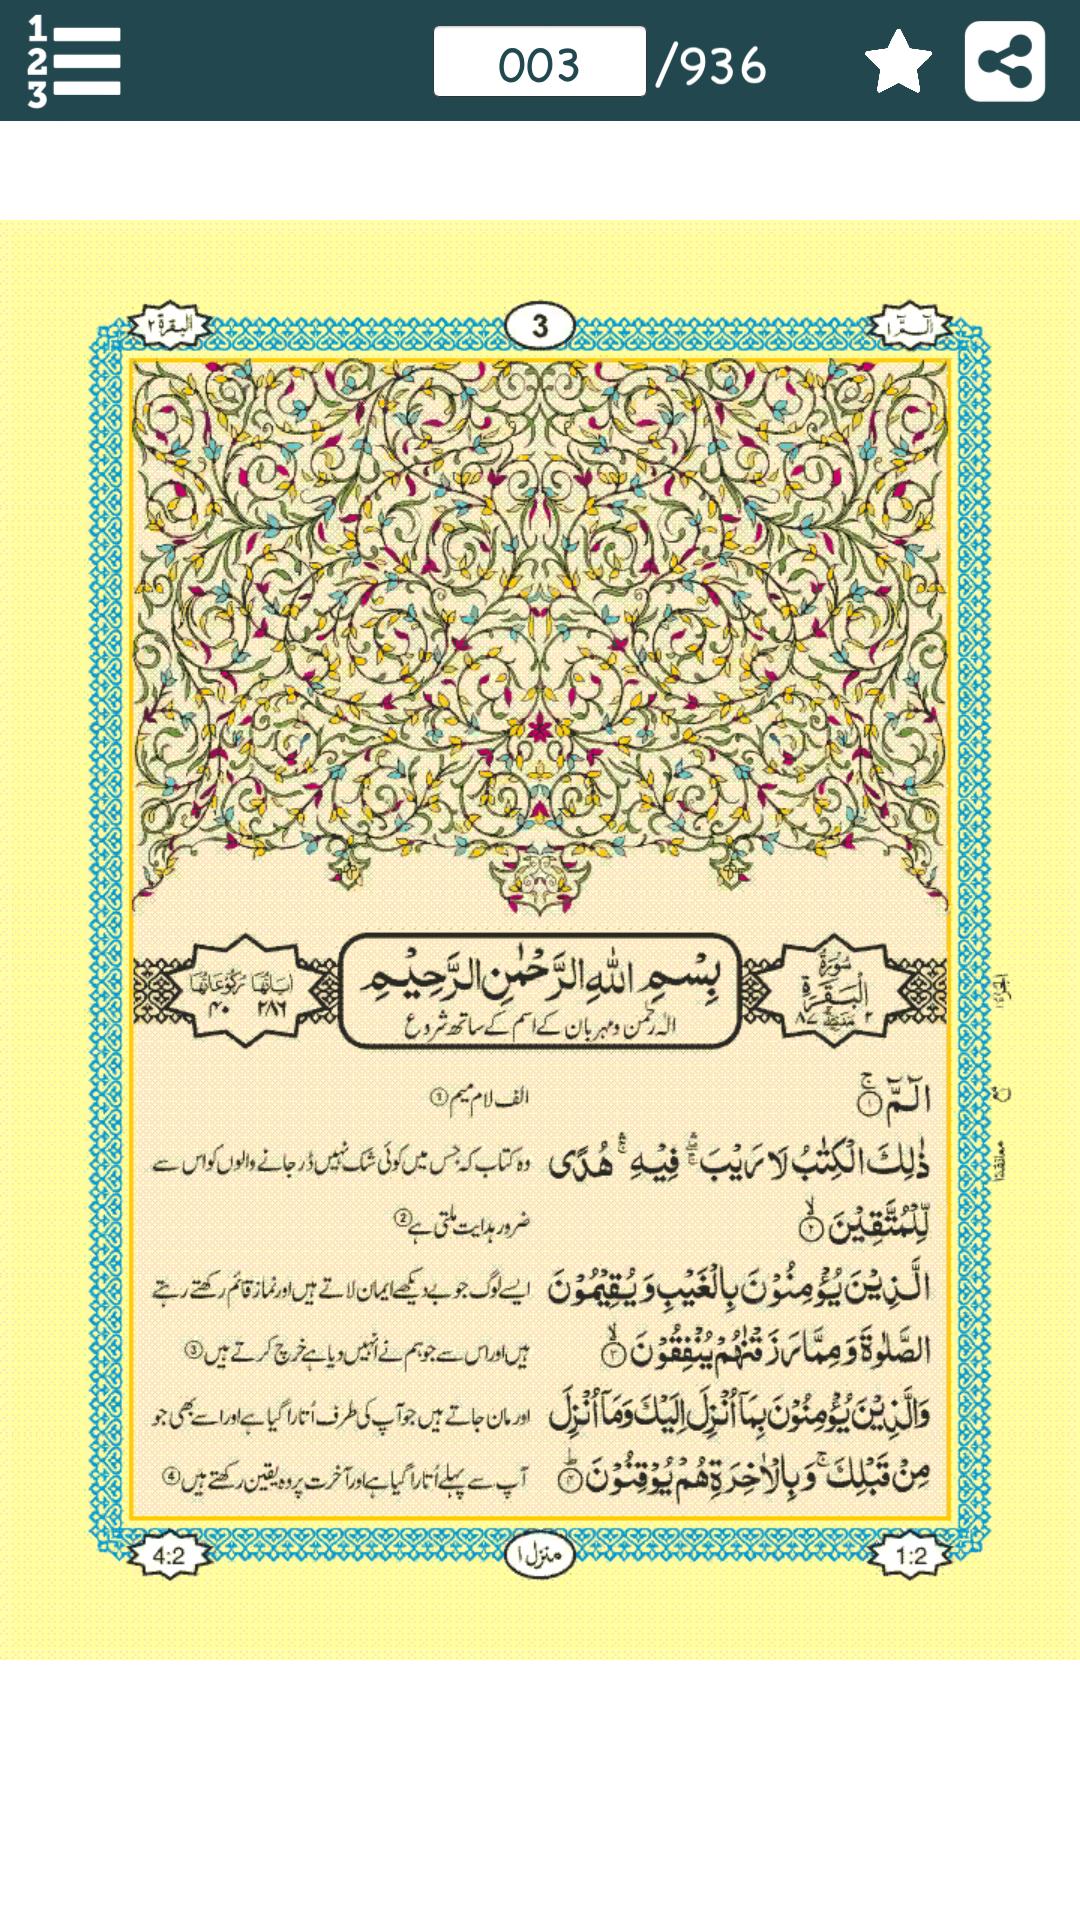 1
2
3
003 /936
الٓمّٓ ١
3
البقرة ٢
سُوْرَةُ الْبَقَرَةِ
٢ ٨٧
بِسْمِ اللّٰهِ الرَّحْمٰنِ الرَّحِيْمِ
الٰہ رحمٰن و مہربان کے اسم کے ساتھ شروع
اٰيَاتُهَا ٢٨٦ رُكُوْعَاتُهَا ٤٠
الٓمّٓ ۚ ١ الف لام میم ①
ذٰلِكَ الْكِتٰبُ لَا رَيْبَ ۛۖ فِيْهِ ۛۚ هُدًى وہ کتاب کہ جس میں کوئی شک نہیں ڈر جانے والوں کو اس سے
لِّلْمُتَّقِيْنَ ۙ ٢ ضرور ہدایت ملتی ہے ②
الَّذِيْنَ يُؤْمِنُوْنَ بِالْغَيْبِ وَيُقِيْمُوْنَ ایسے لوگ جو بے دیکھے ایمان لاتے ہیں اور نماز قائم رکھتے رہتے
الصَّلٰوةَ وَمِمَّا رَزَقْنٰهُمْ يُنْفِقُوْنَ ۙ ٣ ہیں اور اس سے جو ہم نے انہیں دیا ہے خرچ کرتے ہیں ③
وَالَّذِيْنَ يُؤْمِنُوْنَ بِمَآ اُنْزِلَ اِلَيْكَ وَمَآ اُنْزِلَ اور مان جاتے ہیں جو آپ کی طرف اُتارا گیا ہے اور اسے بھی جو
مِنْ قَبْلِكَ ۚ وَبِالْاٰخِرَةِ هُمْ يُوْقِنُوْنَ ؕ ٤ آپ سے پہلے اُتارا گیا ہے اور آخرت پر وہ یقین رکھتے ہیں ④
معانقة ١
1:2
منزل ١
4:2